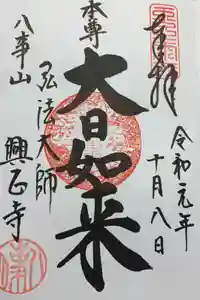 奉拝
令和元年
十月八日
本尊
大日如来
弘法大師
八事山
興正寺